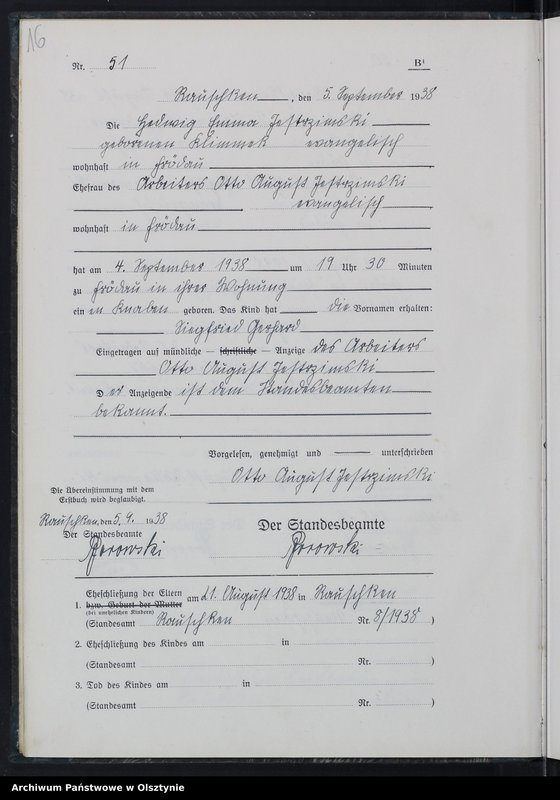 16
Nr. 51 B¹
Rauschken, den 5. September 1938
Die Hedwig Emma Jestrzimski
geborenen Klimmek evangelisch
wohnhaft in Frödau
Ehefrau des Arbeiters Otto August Jestrzimski
evangelisch
wohnhaft in Frödau
hat am 4. September 1938 um 19 Uhr 30 Minuten
zu Frödau in ihrer Wohnung
ein en Knaben geboren. Das Kind hat die Vornamen erhalten:
Siegfried Gerhard
Eingetragen auf mündliche — schriftliche — Anzeige des Arbeiters
Otto August Jestrzimski
Der Anzeigende ist dem Standesbeamten
bekannt.
Vorgelesen, genehmigt und unterschrieben
Otto August Jestrzimski
Die Übereinstimmung mit dem
Erstbuch wird beglaubigt.
Rauschken, den 5. 9. 1938
Der Standesbeamte
Der Standesbeamte
1. Eheschließung der Eltern am 21. August 1938 in Rauschken
bzw. Geburt der Mutter
(bei unehelichen Kindern)
(Standesamt Rauschken Nr. 8/1938)
2. Eheschließung des Kindes am in
(Standesamt Nr. )
3. Tod des Kindes am in
(Standesamt Nr. )
Archiwum Państwowe w Olsztynie